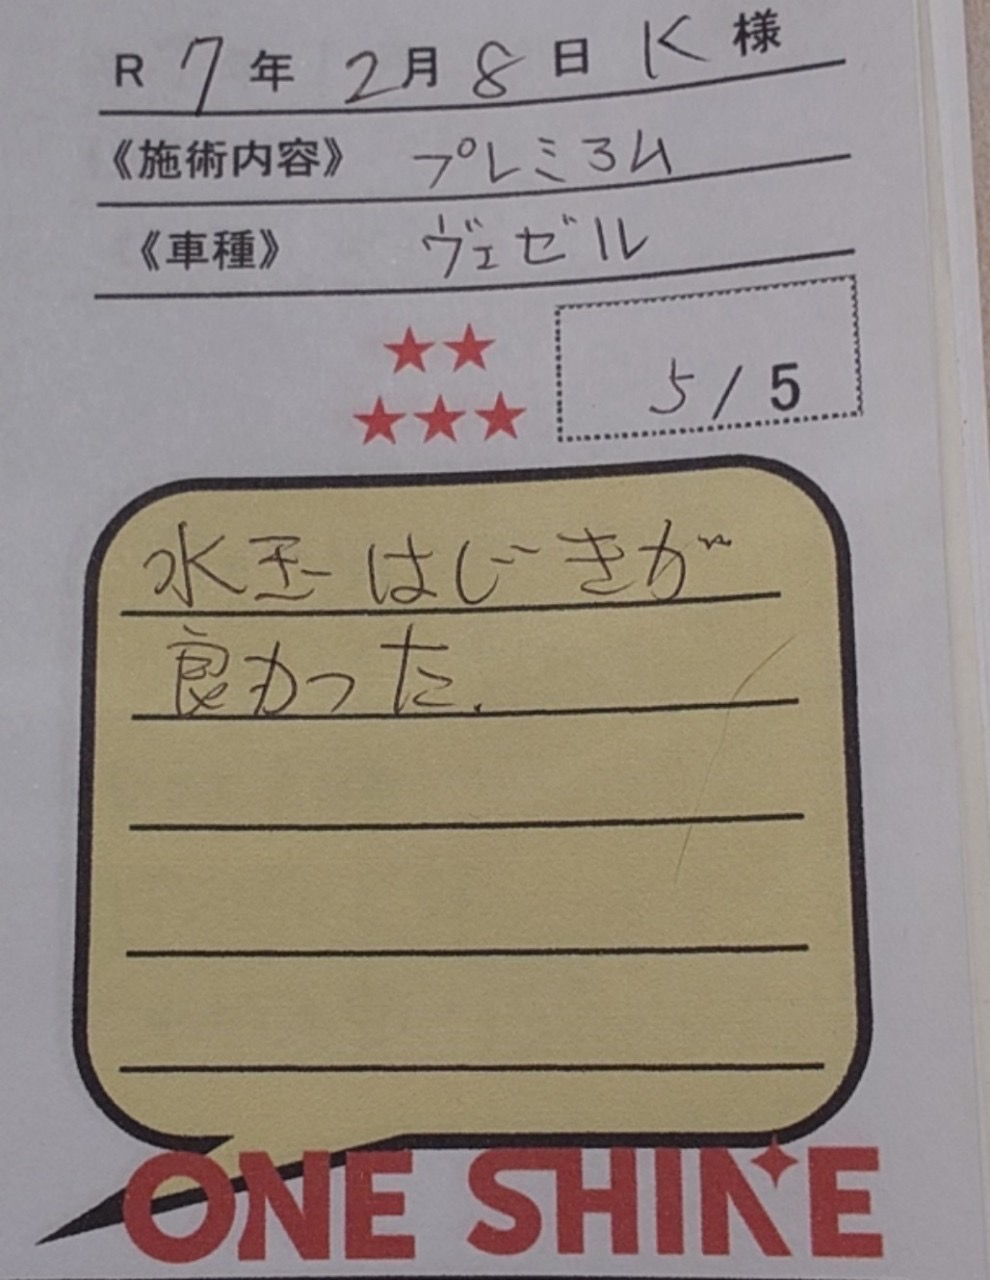 R 7年 2月 8日 K 様
《施術内容》 プレミヨム
《車種》 ヴェゼル
★★
★★★
5/5
水玉はじきが
良かった.
ONE SHINE